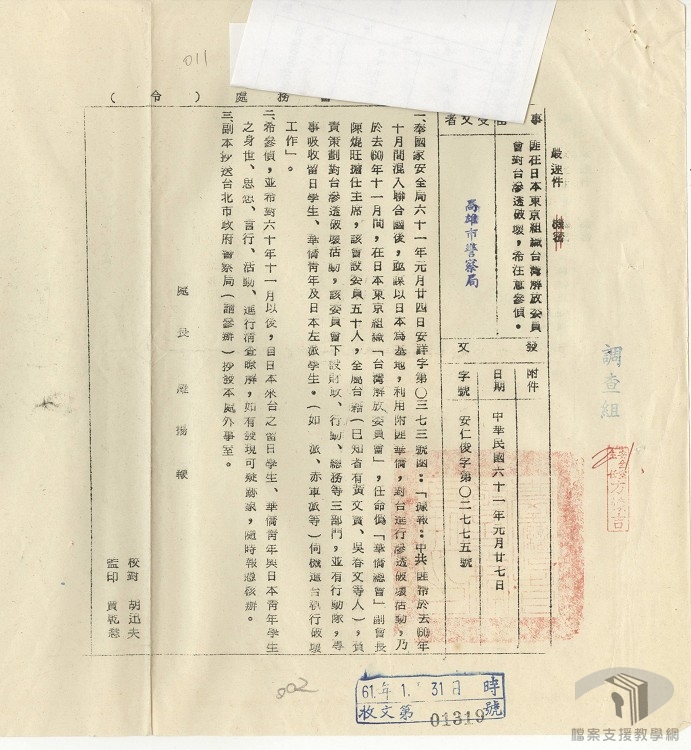 011
務處（令）
調查組
最速件
機密
事
匪在日本東京組織台灣解放委員
會對台滲透破壞，希注意參偵。
受文者
高雄市警察局
發文
附件
日期
中華民國六十一年元月廿七日
字號
安仁俊字第〇二七七五號
一、奉國家安全局六十一年元月廿四日安詳字第〇三七三號函：「據報：中共匪幫於去60年
十月間混入聯合國後，亟謀以日本為基地，利用附匪華僑，對台進行滲透破壞活動，乃
於去60年十一月間，在日本東京組織「台灣解放委員會」，任命偽「華僑總會」副會長
陳焜旺擔任主席，該會設委員五十人，全屬台籍（已知者有黃文賓、吳春文等人），負
責策劃對台滲透破壞活動，該委員會下設財政、行動、總務等三部門，並有行動隊，專
事吸收留日學生、華僑青年及日本左派學生。（如 派、赤軍派等）伺機進台執行破壞
工作」。
二、希參偵，並希對六十年十一月以後，自日本來台之留日學生、華僑青年與日本青年學生
之身世、思想、言行、活動、進行清查瞭解，如有發現可疑跡象，隨時報憑核辦。
三、副本抄送台北市政府警察局（請參辦）抄發本處外事室。
處長 羅揚鞭
校對 胡迅夫
監印 黃乾慧
002
61.年 1. 31日 時
收文第 01319 號
檔案支援教學網